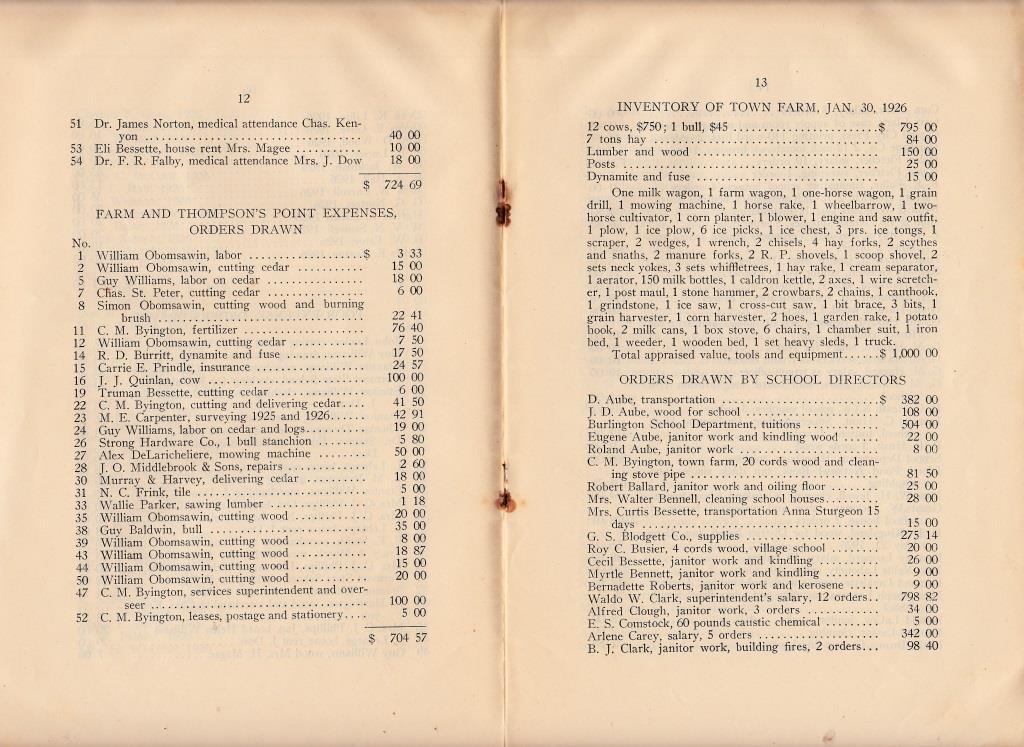 12
51 Dr. James Norton, medical attendance Chas. Ken-
yon .................................... 40 00
53 Eli Bessette, house rent Mrs. Magee ........... 10 00
54 Dr. F. R. Falby, medical attendance Mrs. J. Dow 18 00
$ 724 69
FARM AND THOMPSON'S POINT EXPENSES,
ORDERS DRAWN
No.
1 William Obomsawin, labor ....................$ 3 33
2 William Obomsawin, cutting cedar ........... 15 00
5 Guy Williams, labor on cedar ................ 18 00
7 Chas. St. Peter, cutting cedar ................ 6 00
8 Simon Obomsawin, cutting wood and burning
brush .................................... 22 41
11 C. M. Byington, fertilizer .................... 76 40
12 William Obomsawin, cutting cedar ............ 7 50
14 R. D. Burritt, dynamite and fuse ............. 17 50
15 Carrie E. Prindle, insurance .................. 24 57
16 J. J. Quinlan, cow .......................... 100 00
19 Truman Bessette, cutting cedar ............... 6 00
22 C. M. Byington, cutting and delivering cedar.... 41 50
23 M. E. Carpenter, surveying 1925 and 1926...... 42 91
24 Guy Williams, labor on cedar and logs.......... 19 00
26 Strong Hardware Co., 1 bull stanchion ........ 5 80
27 Alex DeLaricheliere, mowing machine ........ 50 00
28 J. O. Middlebrook & Sons, repairs ............ 2 60
30 Murray & Harvey, delivering cedar .......... 18 00
31 N. C. Frink, tile ............................ 5 00
33 Wallie Parker, sawing lumber ................ 1 18
35 William Obomsawin, cutting wood ............ 20 00
38 Guy Baldwin, bull ........................... 35 00
39 William Obomsawin, cutting wood ............ 8 00
43 William Obomsawin, cutting wood ............ 18 87
44 William Obomsawin, cutting wood ............ 15 00
50 William Obomsawin, cutting wood ............ 20 00
47 C. M. Byington, services superintendent and over-
seer .................................... 100 00
52 C. M. Byington, leases, postage and stationery.... 5 00
$ 704 57
13
INVENTORY OF TOWN FARM, JAN. 30, 1926
12 cows, $750; 1 bull, $45 ........................$ 795 00
7 tons hay ..................................... 84 00
Lumber and wood ............................... 150 00
Posts .......................................... 25 00
Dynamite and fuse .............................. 15 00
One milk wagon, 1 farm wagon, 1 one-horse wagon, 1 grain
drill, 1 mowing machine, 1 horse rake, 1 wheelbarrow, 1 two-
horse cultivator, 1 corn planter, 1 blower, 1 engine and saw outfit,
1 plow, 1 ice plow, 6 ice picks, 1 ice chest, 3 prs. ice tongs, 1
scraper, 2 wedges, 1 wrench, 2 chisels, 4 hay forks, 2 scythes
and snaths, 2 manure forks, 2 R. P. shovels, 1 scoop shovel, 2
sets neck yokes, 3 sets whiffletrees, 1 hay rake, 1 cream separator,
1 aerator, 150 milk bottles, 1 caldron kettle, 2 axes, 1 wire stretch-
er, 1 post maul, 1 stone hammer, 2 crowbars, 2 chains, 1 canthook,
1 grindstone, 1 ice saw, 1 cross-cut saw, 1 bit brace, 3 bits, 1
grain harvester, 1 corn harvester, 2 hoes, 1 garden rake, 1 potato
hook, 2 milk cans, 1 box stove, 6 chairs, 1 chamber suit, 1 iron
bed, 1 weeder, 1 wooden bed, 1 set heavy sleds, 1 truck.
Total appraised value, tools and equipment......$ 1,000 00
ORDERS DRAWN BY SCHOOL DIRECTORS
D. Aube, transportation ..........................$ 382 00
J. D. Aube, wood for school ...................... 108 00
Burlington School Department, tuitions ............ 504 00
Eugene Aube, janitor work and kindling wood ...... 22 00
Roland Aube, janitor work ....................... 8 00
C. M. Byington, town farm, 20 cords wood and clean-
ing stove pipe ........................... 81 50
Robert Ballard, janitor work and oiling floor ........ 25 00
Mrs. Walter Bennell, cleaning school houses......... 28 00
Mrs. Curtis Bessette, transportation Anna Sturgeon 15
days ........................................ 15 00
G. S. Blodgett Co., supplies ...................... 275 14
Roy C. Busier, 4 cords wood, village school ........ 20 00
Cecil Bessette, janitor work and kindling .......... 26 00
Myrtle Bennett, janitor work and kindling ......... 9 00
Bernadette Roberts, janitor work and kerosene .... 9 00
Waldo W. Clark, superintendent's salary, 12 orders.. 798 82
Alfred Clough, janitor work, 3 orders ............ 34 00
E. S. Comstock, 60 pounds caustic chemical ......... 5 00
Arlene Carey, salary, 5 orders .................... 342 00
B. J. Clark, janitor work, building fires, 2 orders... 98 40